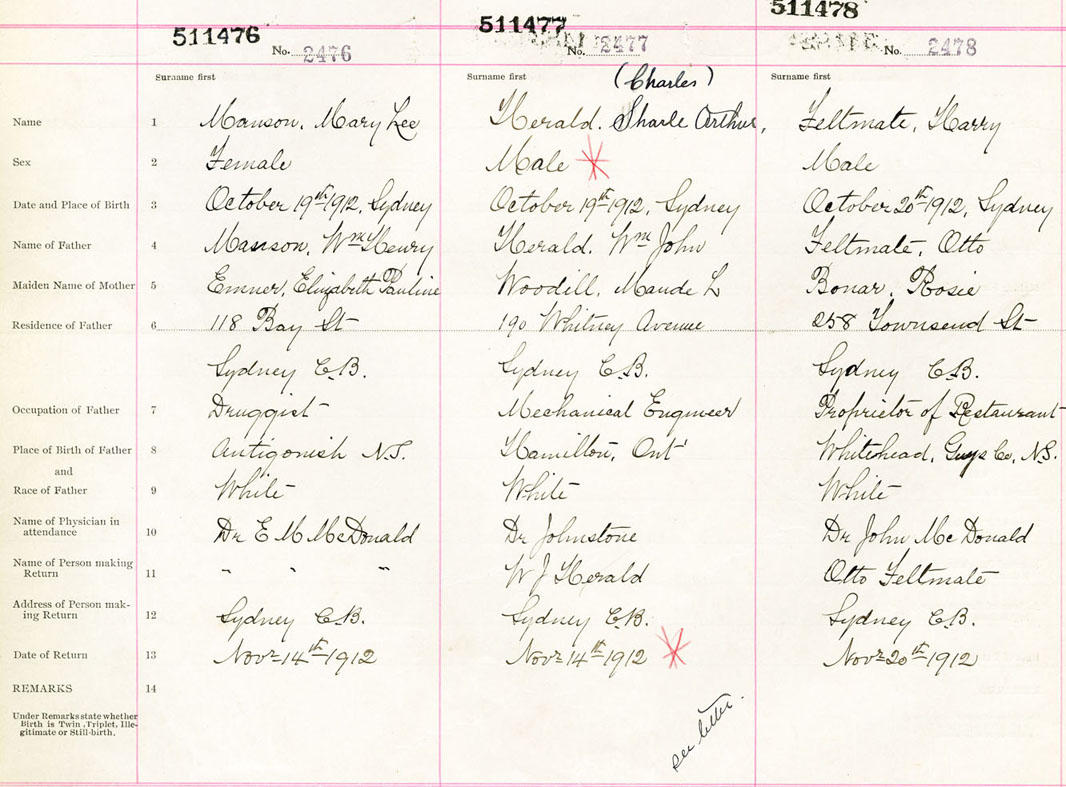 511476 511477 511478
No. 2476 No. 2477 No. 2478
Surname first Surname first (Charles) Surname first
Name 1 Manson, Mary Lee Herald, Sharle Arthur, Feltmate, Harry
Sex 2 Female Male Male
Date and Place of Birth 3 October 19th 1912, Sydney October 19th 1912, Sydney October 20th 1912, Sydney
Name of Father 4 Manson, Wm Henry Herald, Wm John Feltmate, Otto
Maiden Name of Mother 5 Elizabeth Pauline Woodill, Maude L Bonar, Rosie
Residence of Father 6 118 Bay St 190 Whitney Avenue 258 Townsend St
Sydney C.B. Sydney C.B. Sydney C.B.
Occupation of Father 7 Druggist Mechanical Engineer Proprietor of Restaurant
Place of Birth of Father 8 Antigonish N.S. Hamilton, Ont Whitehead, Guys Co, N.S.
and
Race of Father 9 White White White
Name of Physician in
attendance 10 Dr E M McDonald Dr Johnstone Dr John McDonald
Name of Person making
Return 11 " " " W J Herald Otto Feltmate
Address of Person mak-
ing Return 12 Sydney C.B. Sydney C.B. Sydney C.B.
Date of Return 13 Novr 14th 1912 Novr 14th 1912 Novr 20th 1912
REMARKS 14
Under Remarks state whether
Birth is Twin, Triplet, Ille-
gitimate or Still-birth.
see letter.